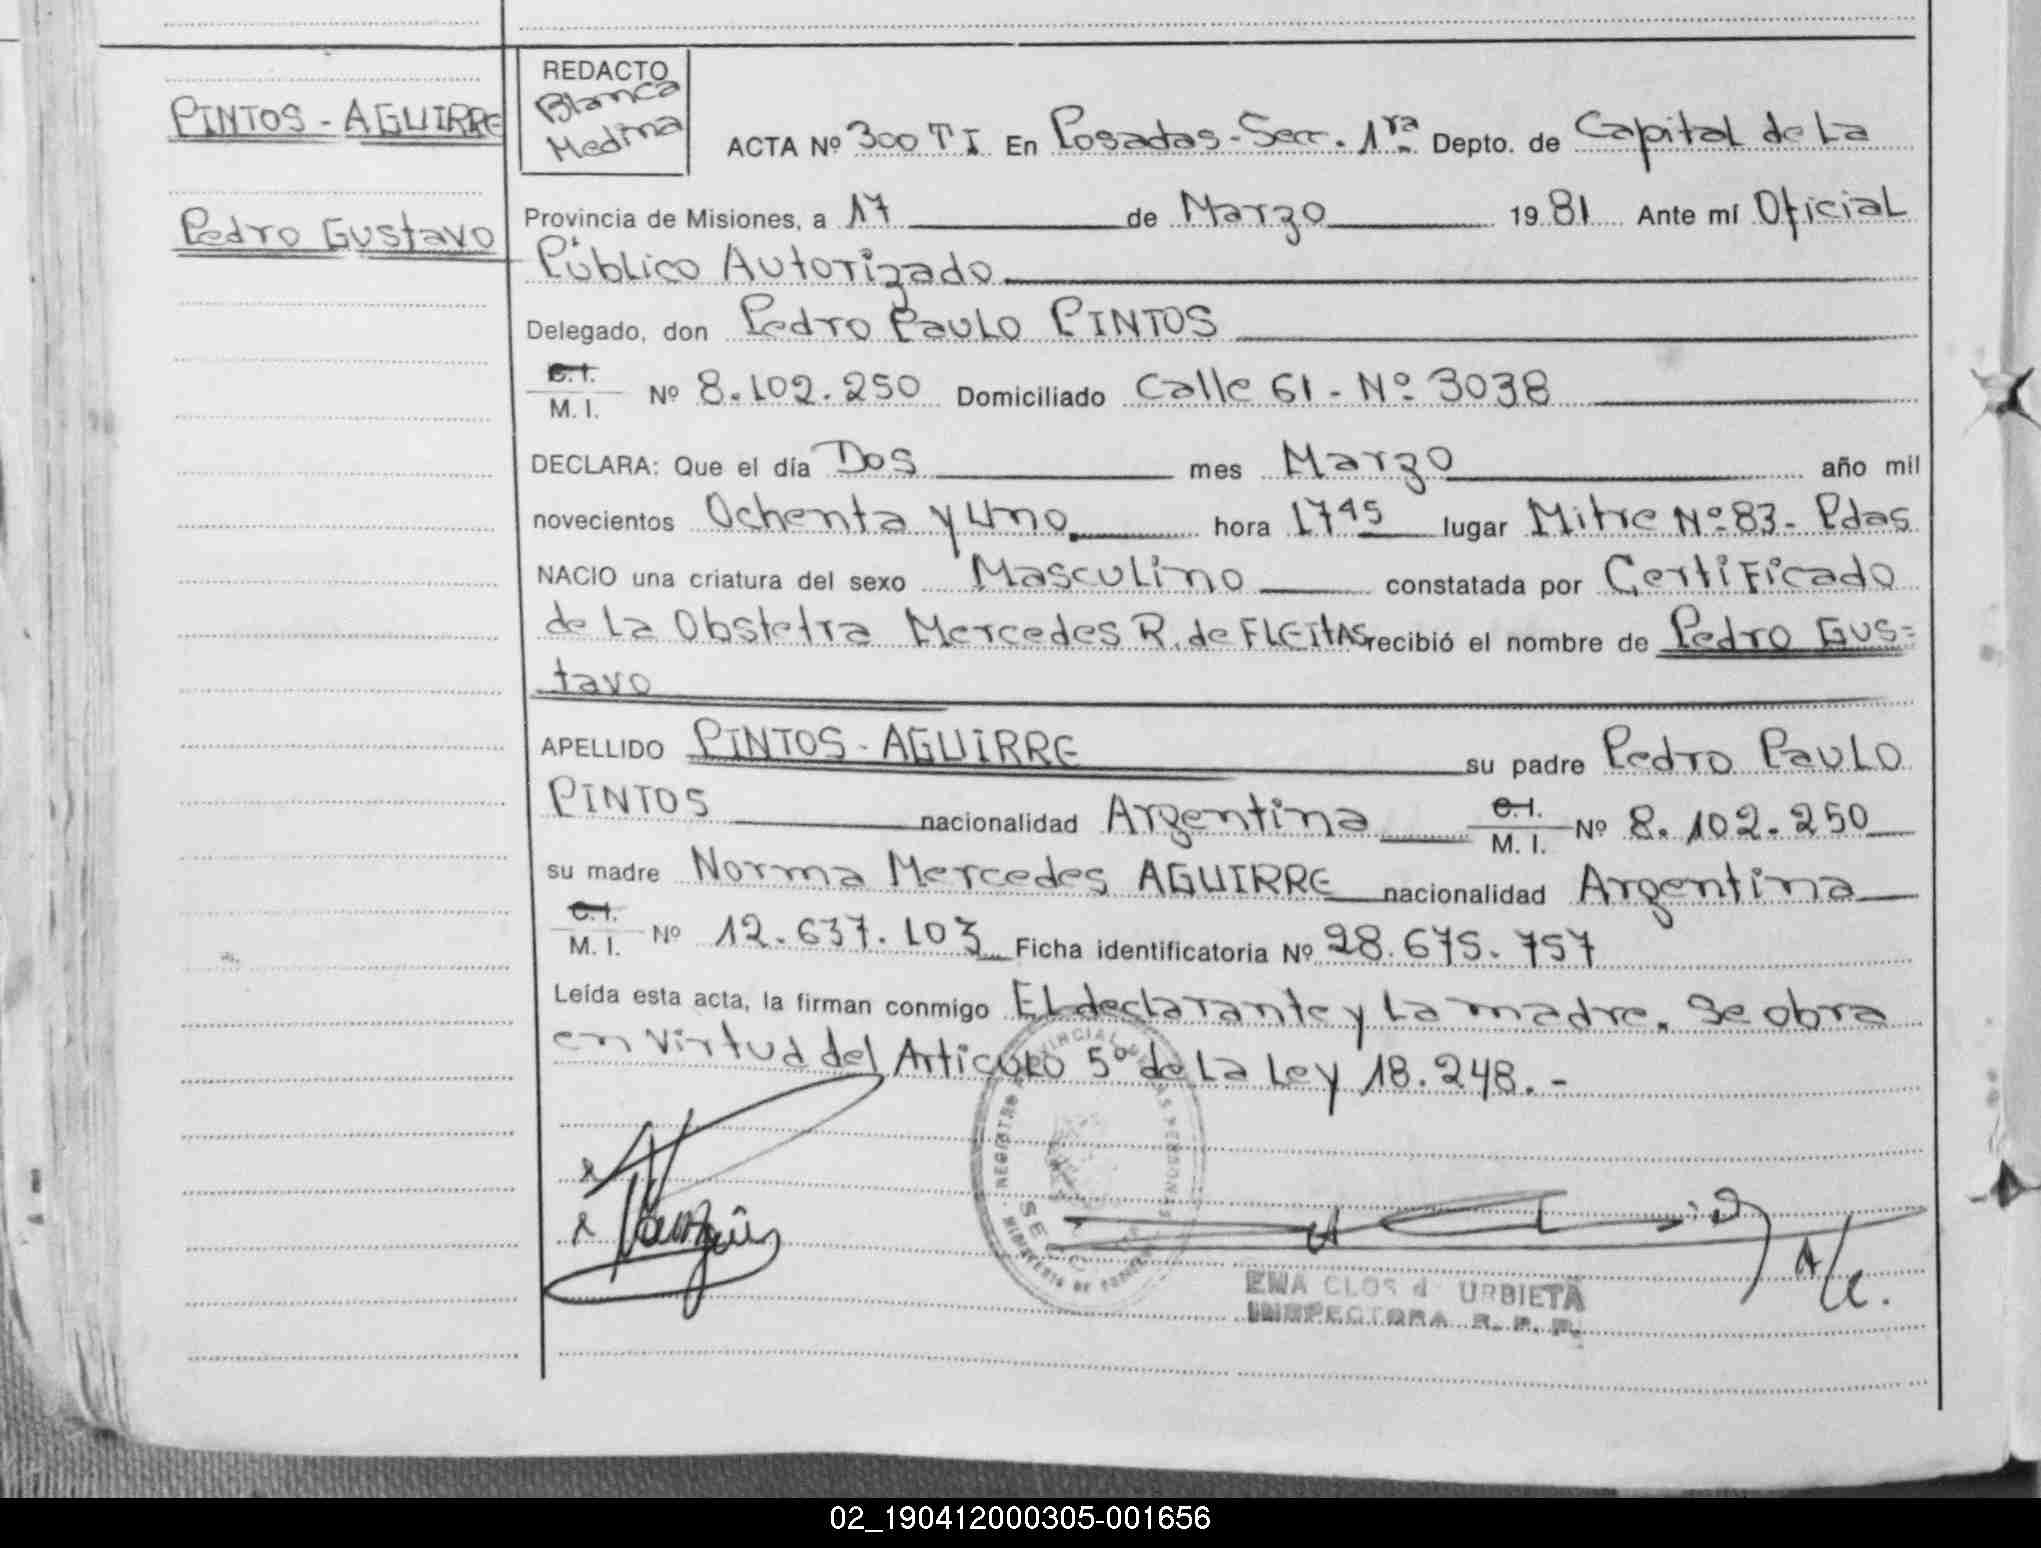 PINTOS - AGUIRRE
Pedro Gustavo
REDACTO
Blanca
Medina
ACTA Nº 300 T I En Posadas - Secc. 1ra Depto. de Capital de La
Provincia de Misiones, a 17 de Marzo 19 81 Ante mí Oficial
Público Autorizado
Delegado, don Pedro Paulo PINTOS
C. I.
M. I. Nº 8.102.250 Domiciliado Calle 61 - Nº 3038
DECLARA: Que el día Dos mes Marzo año mil
novecientos Ochenta y Uno hora 1745 lugar Mitre Nº 83 - Pdas
NACIO una criatura del sexo Masculino constatada por Certificado
de La Obstetra Mercedes R. de FLEITAS recibió el nombre de Pedro Gus=
tavo
APELLIDO PINTOS - AGUIRRE su padre Pedro Paulo
PINTOS nacionalidad Argentina C. I. M. I. Nº 8.102.250
su madre Norma Mercedes AGUIRRE nacionalidad Argentina
C. I.
M. I. Nº 12.637.103 Ficha identificatoria Nº 28.675.757
Leída esta acta, la firman conmigo El declarante y La madre. Se obra
en virtud del Articulo 5º de La Ley 18.248. -
REGISTRO PROVINCIAL DE LAS PERSONAS
EMA CLOS d URBIETA
INSPECTORA R. P. P.
02_190412000305-001656